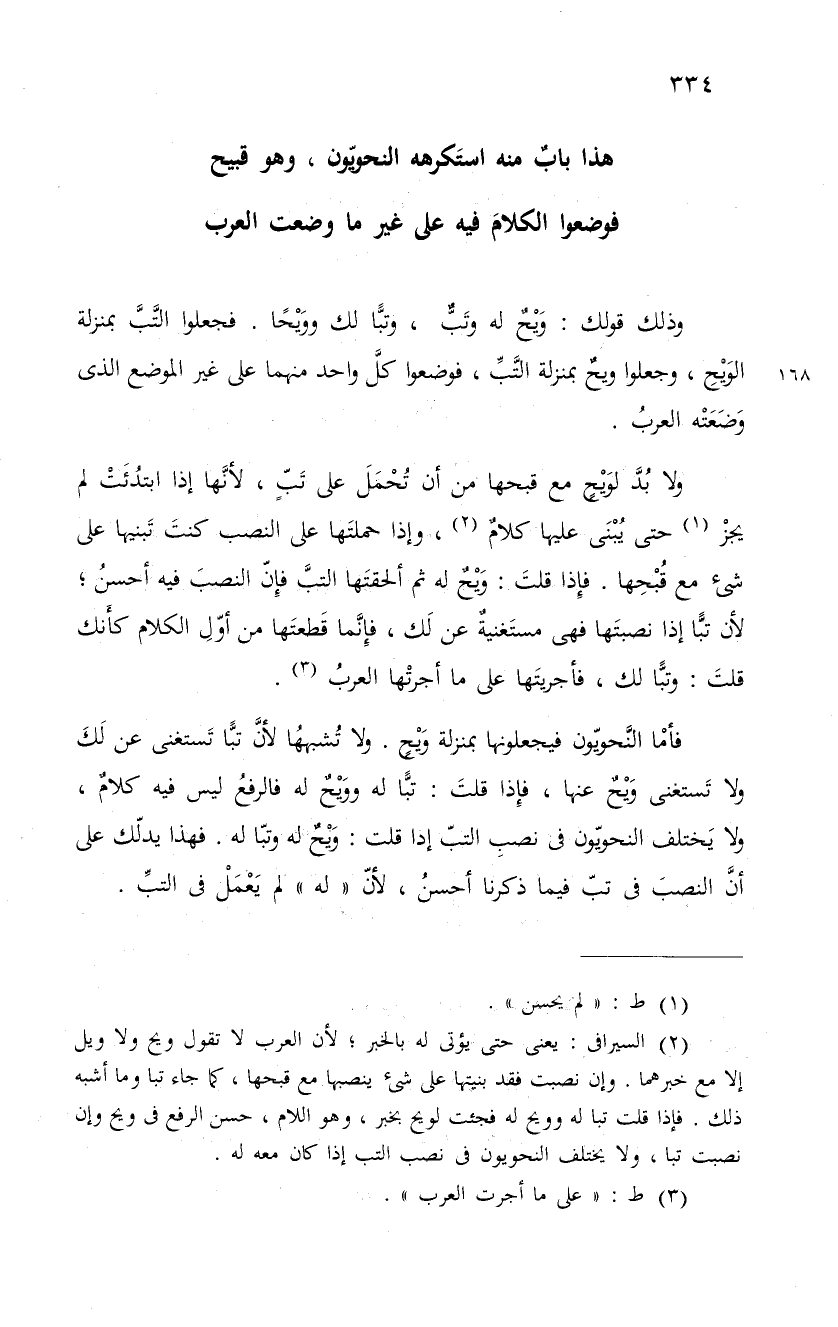 ٣٣٤
هذا بابٌ منه استَكرهه النحويّون ، وهو قبيح
فوضعوا الكلامَ فيه على غير ما وضعت العرب
وذلك قولك : وَيْحٌ له وتَبٌّ ، وتبًّا لك ووَيْحًا . فجعلوا التَّبَّ بمنزلة
الوَيْحِ ، وجعلوا ويحٌ بمنزلة التَّبِّ ، فوضعوا كلَّ واحد منهما على غير الموضع الذى
١٦٨
وَضَعَتْه العربُ .
ولا بُدَّ لوَيْحٍ مع قبحها من أن تُحْمَلَ على تَبّ ، لأنَّها إذا ابتدُئَتْ لم
يجزْ (١) حتى يُبْنَى عليها كلامٌ (٢) ، وإذا حملتَها على النصب كنتَ تَبنيها على
شىء مع قُبْحِها . فإذا قلتَ : وَيْحٌ له ثم ألحقتَها التبَّ فإنّ النصبَ فيه أحسنُ ؛
لأن تبًّا إذا نصبتَها فهى مستَغنيةٌ عن لَك ، فإنَّما قَطعتَها من أوّلِ الكلام كأنك
قلتَ : وتبًّا لك ، فأجريتَها على ما أجرتْها العربُ (٣) .
فأمّا النَّحويّون فيجعلونها بمنزلة وَيْحٍ . ولا تُشبهُها لأنَّ تبًّا تَستغنى عن لَكَ
ولا تَستغنى وَيْحٌ عنها ، فإذا قلتَ : تبًّا له ووَيْحٌ له فالرفعُ ليس فيه كلامٌ ،
ولا يَختلف النحويّون فى نصبِ التبّ إذا قلت : وَيْحٌ له وتبّا له . فهذا يدلّك على
أنَّ النصبَ فى تبّ فيما ذكرنا أحسنُ ، لأنّ « له » لم يَعْمَلْ فى التبِّ .
(١) ط : « لم يحسن » .
(٢) السيرافى : يعنى حتى يؤتى له بالخبر ؛ لأن العرب لا تقول ويح ولا ويل
إلا مع خبرهما . وإن نصبت فقد بنيتها على شىء ينصبها مع قبحها ، كما جاء تبا وما أشبه
ذلك . فإذا قلت تبا له وويح له فجئت لويح بخبر ، وهو اللام ، حسن الرفع فى ويح وإن
نصبت تبا ، ولا يختلف النحويون فى نصب التب إذا كان معه له .
(٣) ط : « على ما أجرت العرب » .